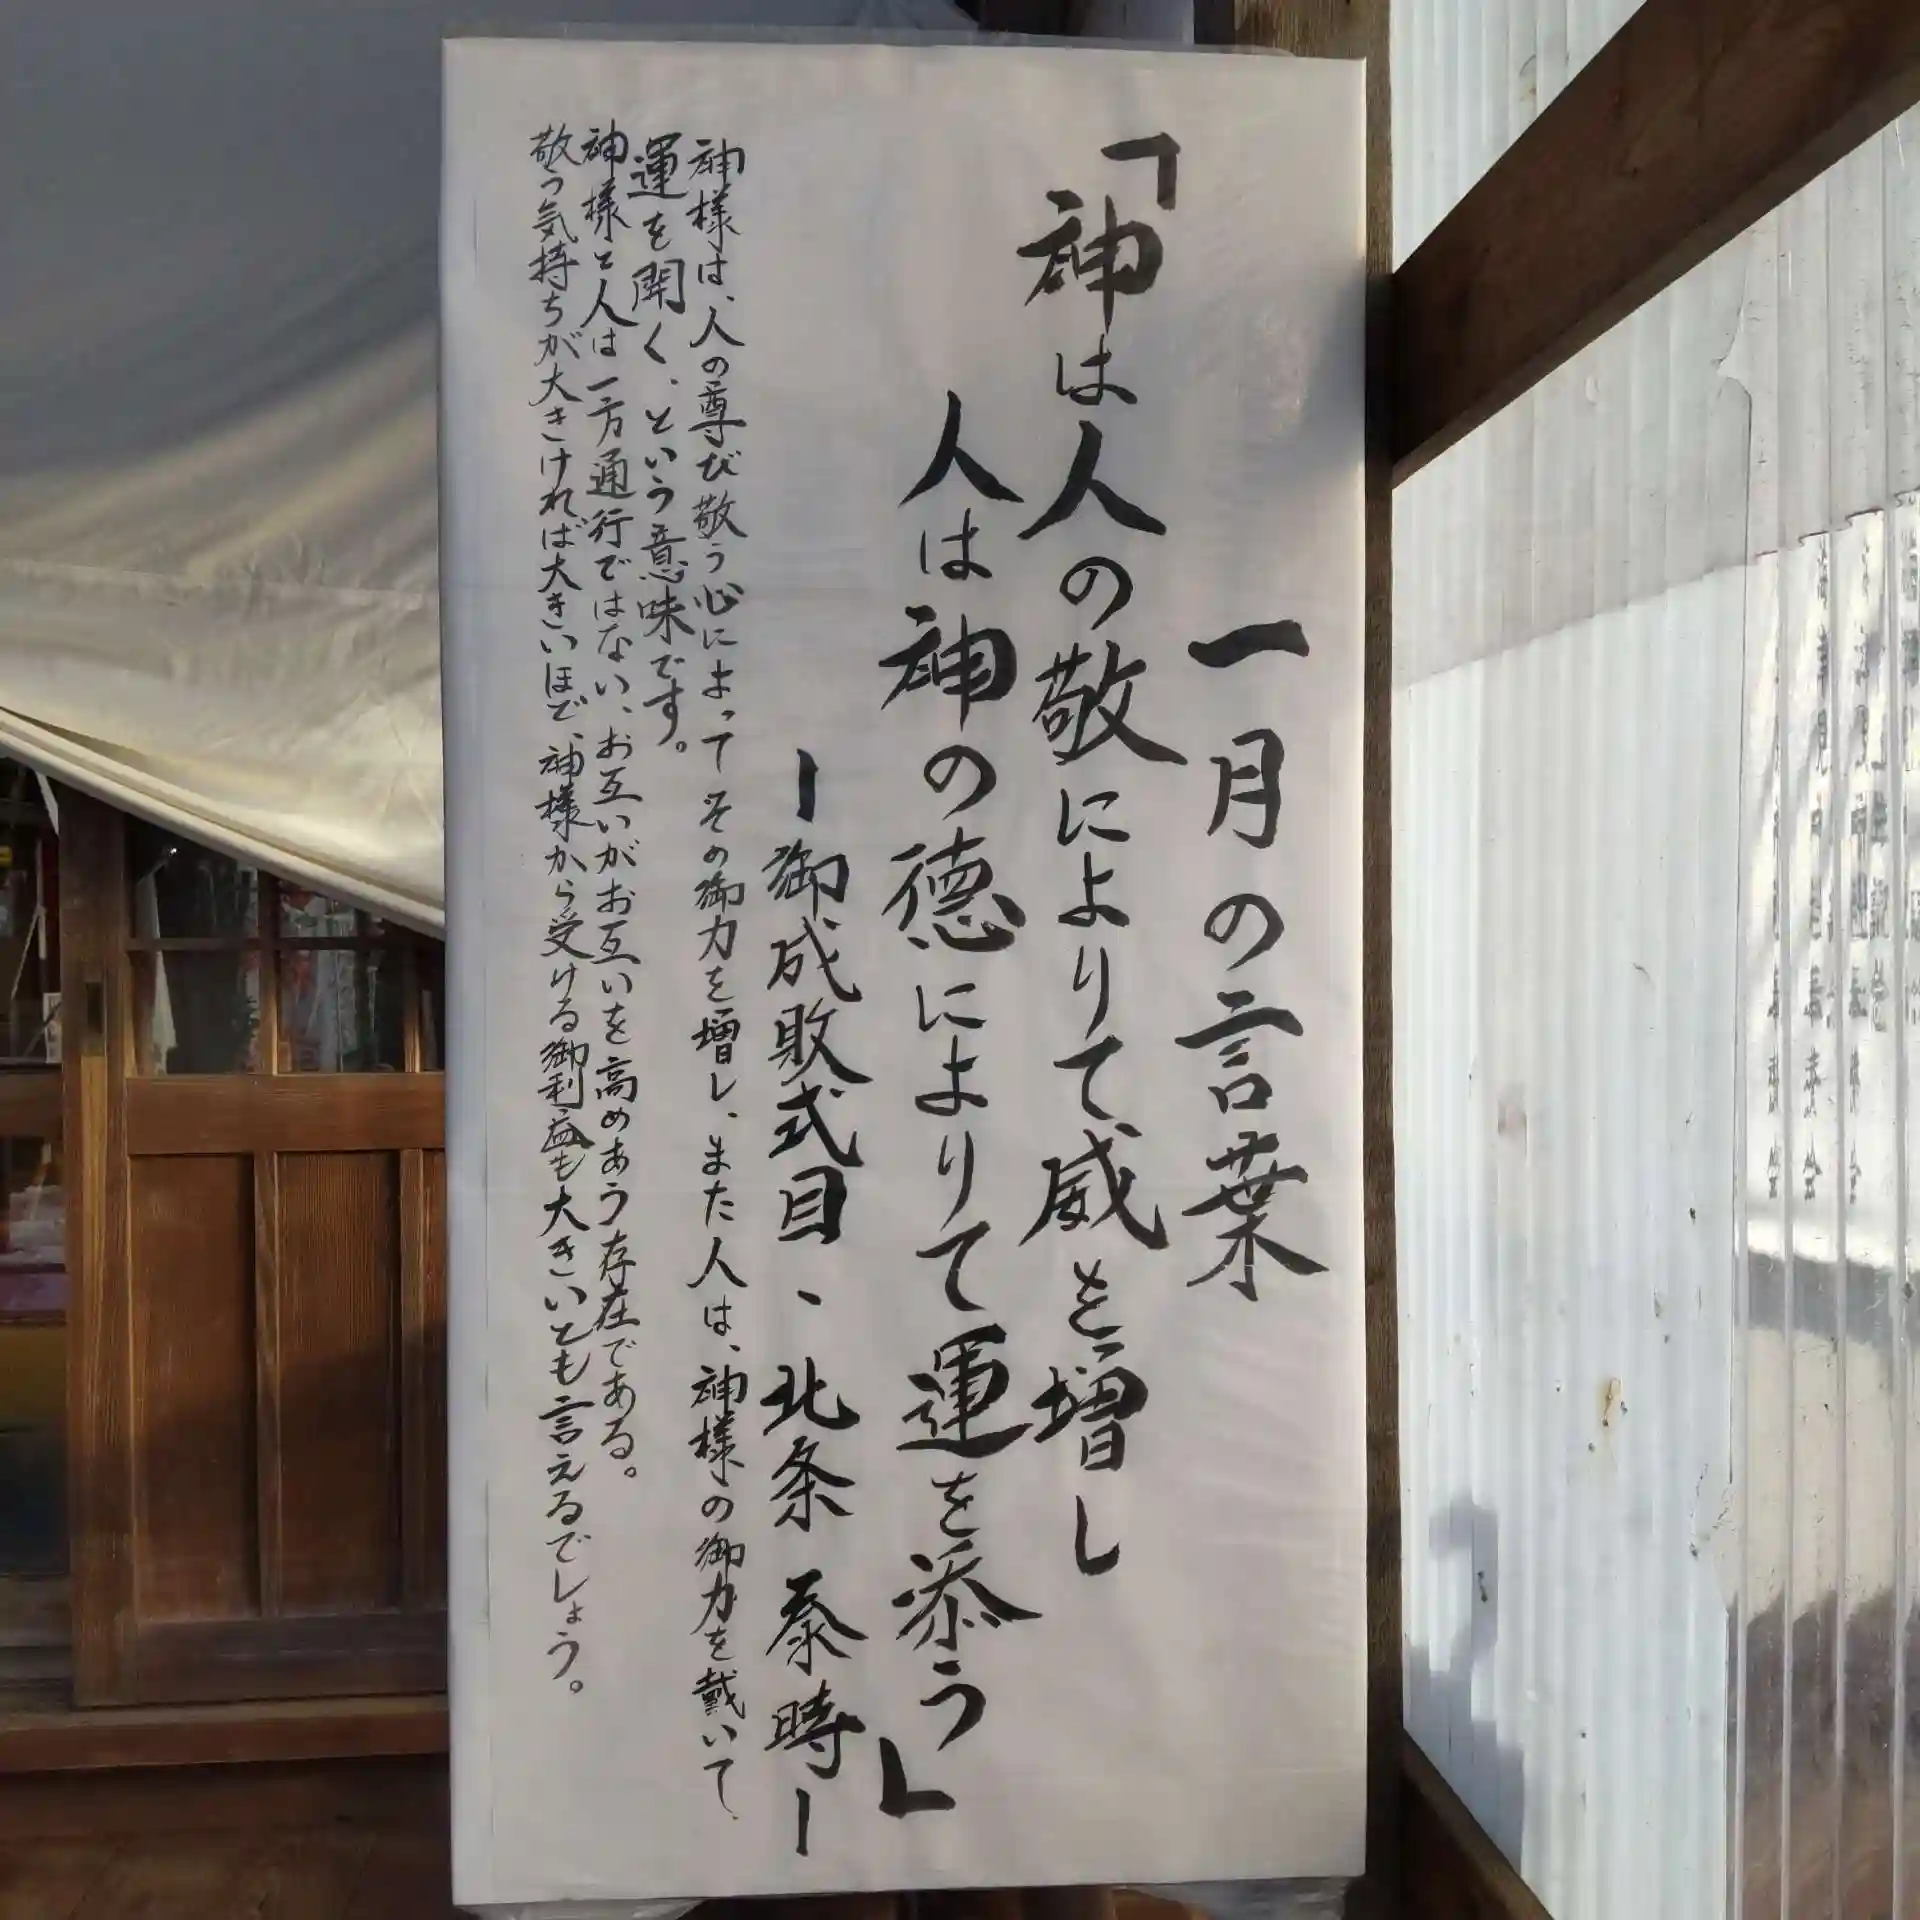 一月の言葉
「神は人の敬によりて威を増し
人は神の徳によりて運を添う」
ー御成敗式目、北条泰時ー
神様は、人の尊び敬う心によってその御力を増し、また人は、神様の御力を戴いて、
運を開く、という意味です。
神様と人は一方通行ではない、お互いがお互いを高めあう存在である。
敬う気持ちが大きければ大きいほど、神様から受ける御利益も大きいとも言えるでしょう。